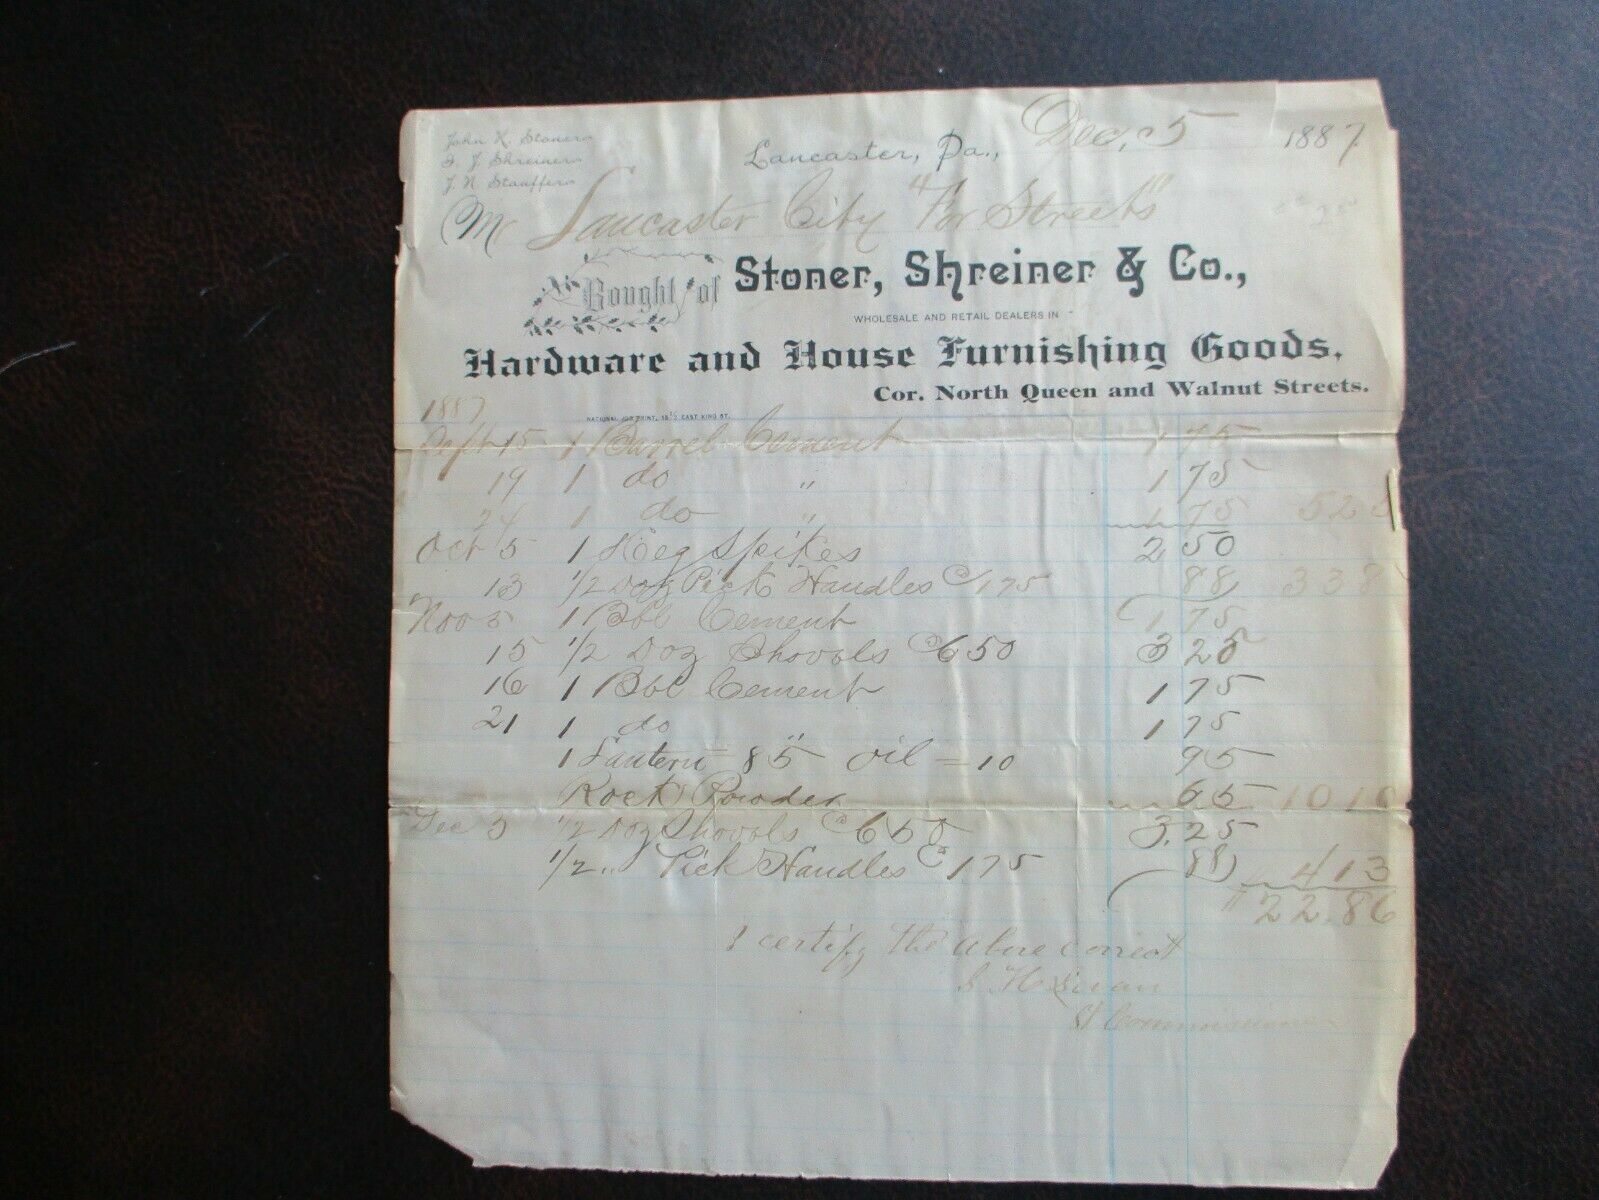 John K. Stoner
J. N. Stauffer
Lancaster, Pa., Dec. 5 1887
Mr Lancaster City "For Streets"
Bought of Stoner, Shreiner & Co.,
WHOLESALE AND RETAIL DEALERS IN
Hardware and House Furnishing Goods,
Cor. North Queen and Walnut Streets.
NATIONAL JOB PRINT, 18½ EAST KING ST.
1887
Sept 15 1 Barrel Cement 1 75
19 1 do " 1 75
24 1 do " 1 75 5 25
Oct 5 1 Keg Spikes 2 50
13 1/2 Doz Pick Handles @ 1 75 88 3 38
Nov 5 1 Bbl Cement 1 75
15 1/2 Doz Shovels @ 6 50 3 25
16 1 Bbl Cement 1 75
21 1 do " 1 75
1 Lantern = 85 Oil = 10 95
Rock Powder 65 10 10
Dec 5 1/2 Doz Shovels @ 6 50 3.25
1/2 " Pick Handles @ 1 75 88 4 13
$ 22.86
I certify the above correct
St Commissioner